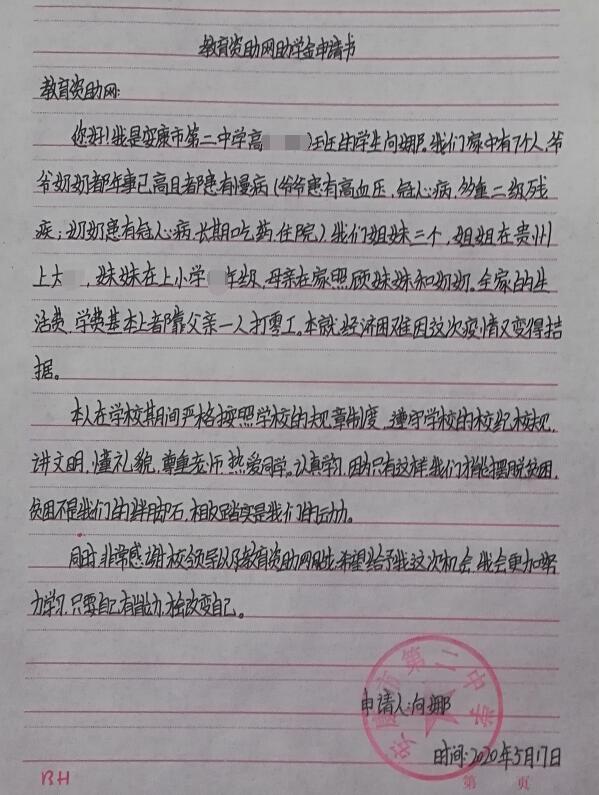 教育资助网助学金申请书
教育资助网:
你好!我是安康市第二中学高 班的学生向娜。我们家中有7个人,爷
爷奶奶都年事已高且都患有慢病(爷爷患有高血压,冠心病,多重二级残
疾;奶奶患有冠心病,长期吃药,住院)我们姐妹三个,姐姐在贵州
上大 ,妹妹在上小学 年级,母亲在家照顾妹妹和奶奶。全家的的生
活费,学费基本上都靠父亲一人打零工。本就经济困难因这次疫情又变得拮
据。
本人在学校期间严格按照学校的规章制度,遵守学校的校纪校规,
讲文明,懂礼貌,尊重老师,热爱同学。认真学习,因为只有这样我们才能摆脱贫困,
贫困不是我们的绊脚石,相反踏实是我们的动力。
同时,非常感谢校领导以及教育资助网 希望给予我这次机会,我会更加努
力学习,只要自己有能力,才会改变自己。
安康市第二中学
申请人:向娜
时间:2020年5月17日
BH
第 页